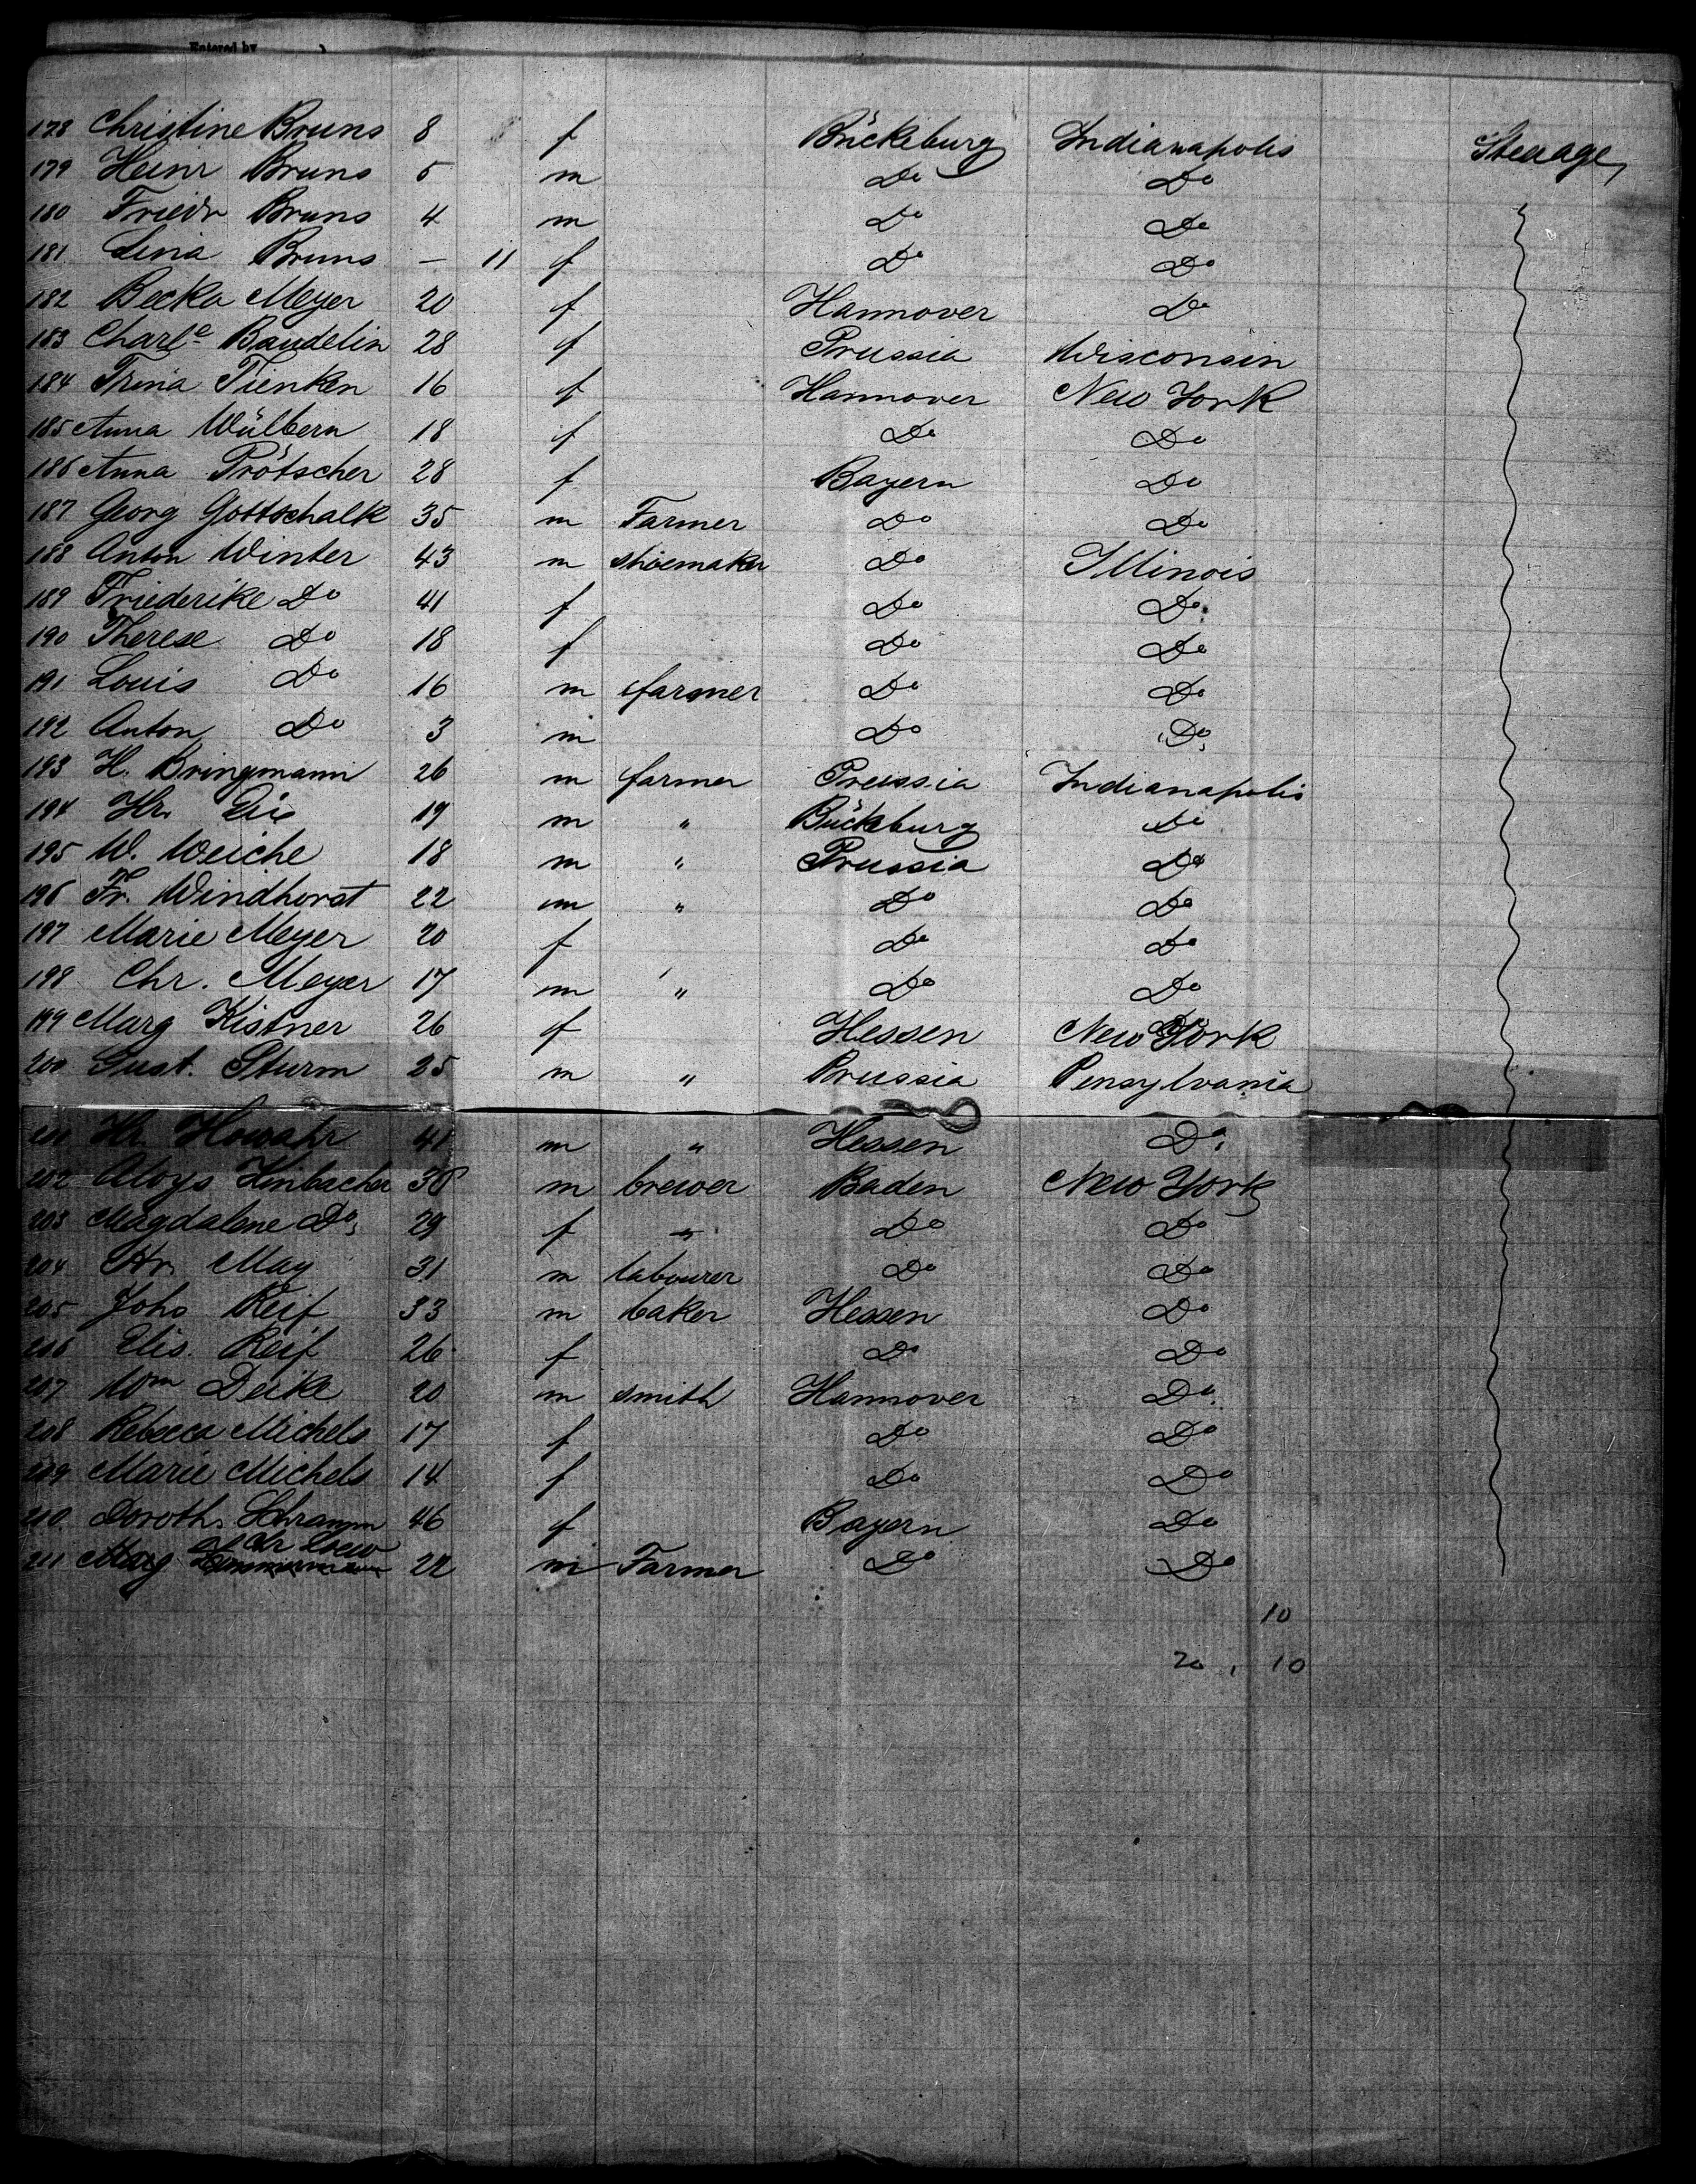 Entered by
178 Christine Bruns 8 f Bückeburg Indianapolis Steerage
179 Heinr Bruns 5 m Do Do
180 Friedr Bruns 4 m Do Do
181 Lina Bruns — 11 f Do Do
182 Becka Meyer 20 f Hannover Do
183 Charle Baudelin 28 f Prussia Wisconsin
184 Trina Tienken 16 f Hannover New York
185 Anna Wülbern 18 f Do Do
186 Anna Prötscher 28 f Bayern Do
187 Georg Gottschalk 35 m Farmer Do Do
188 Anton Winter 43 m shoemaker Do Illinois
189 Friederike Do 41 f Do Do
190 Therese Do 18 f Do Do
191 Louis Do 16 m farmer Do Do
192 Anton Do 3 m Do Do
193 H. Bringmann 26 m farmer Preussia Indianapolis
194 Hr. 19 m " Bückeburg Do
195 W. Weiche 18 m " Prussia Do
196 Fr. Windhorst 22 m " Do Do
197 Marie Meyer 20 f Do Do
198 Chr. Meyer 17 m " Do Do
199 Marg Kistner 26 f Hessen New York
200 Gust. Sturm 25 m " Prussia Pensylvania
201 Hr. Howahr 41 m " Hessen Do
202 Aloys Hinbacher 30 m brewer Baden New York
203 Magdalene Do 29 f " Do Do
204 Hr. May 31 m labourer Do Do
205 Johs Reif 33 m baker Hessen Do
206 Elis. Reif 26 f Do Do
207 Wm Deike 20 m smith Hannover Do
208 Rebecca Michels 17 f Do Do
209 Marie Michels 14 f Do Do
210 Doroth. Schramm 46 f Bayern Do
Chr Loew
211 Marg Zimmermann 22 m Farmer Do Do
10
20 , 10